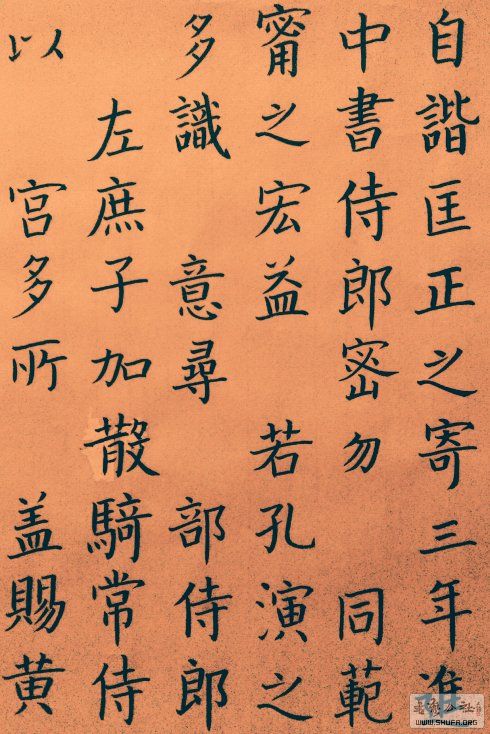 自諧匡正之寄三年准
中書侍郎密勿同範
甯之宏益若孔演之
多識意尋部侍郎
左庶子加散騎常侍
以宮多所益賜黄
WWW.SHUFA.ORG